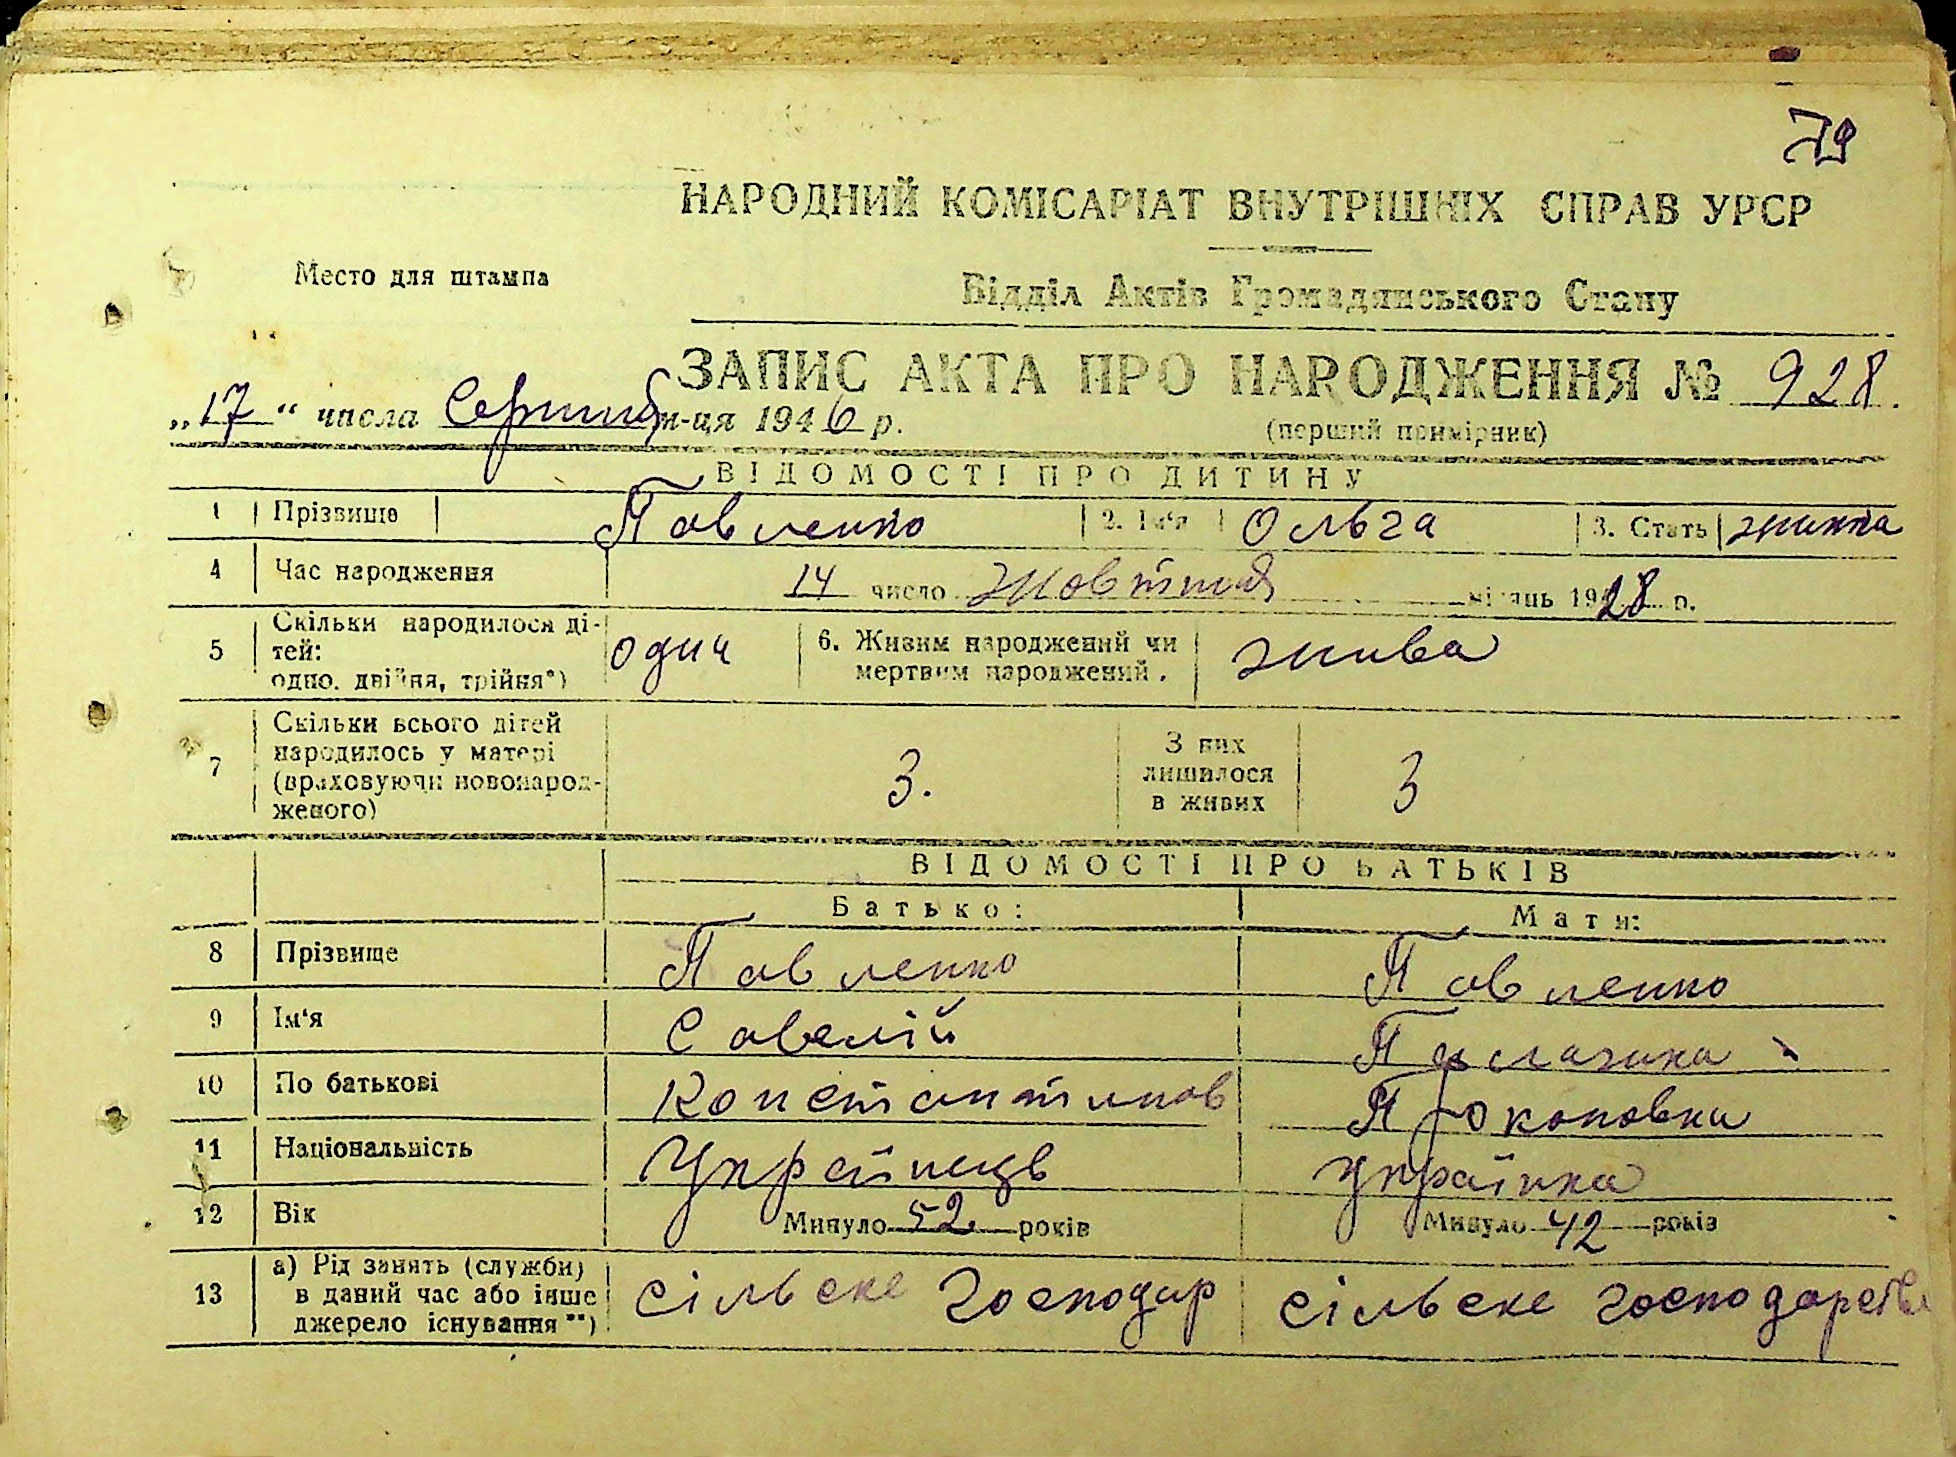 79
НАРОДНИЙ КОМІСАРІАТ ВНУТРІШНІХ СПРАВ УРСР
Место для штампа
Відділ Актів Громадянського Стану
ЗАПИС АКТА ПРО НАРОДЖЕННЯ № 928.
„17“ числа Серпня м-ця 1946 р.
(перший примірник)
ВІДОМОСТІ ПРО ДИТИНУ
1 Прізвище Павленко 2. Ім'я Ольга 3. Стать
4 Час народження 14 число Жовтня місяць 1928 р.
5 Скільки народилося ді-
тей:
одно, двійня, трійня*)
один
6. Живим народжений чи
мертвим народжений.
жива
7 Скільки всього дітей
народилось у матері
(враховуючи новонарод-
женого)
3.
З них
лишилося
в живих
3
ВІДОМОСТІ ПРО БАТЬКІВ
Батько: Мати:
8 Прізвище Павленко Павленко
9 Ім'я Савелій
10 По батькові Константинов Прокоповна
11 Національність Українець українка
12 Вік Минуло 52 років Минуло 42 років
13 а) Рід занять (служби)
в даний час або інше
джерело існування**)
сільське господар сільське господарства